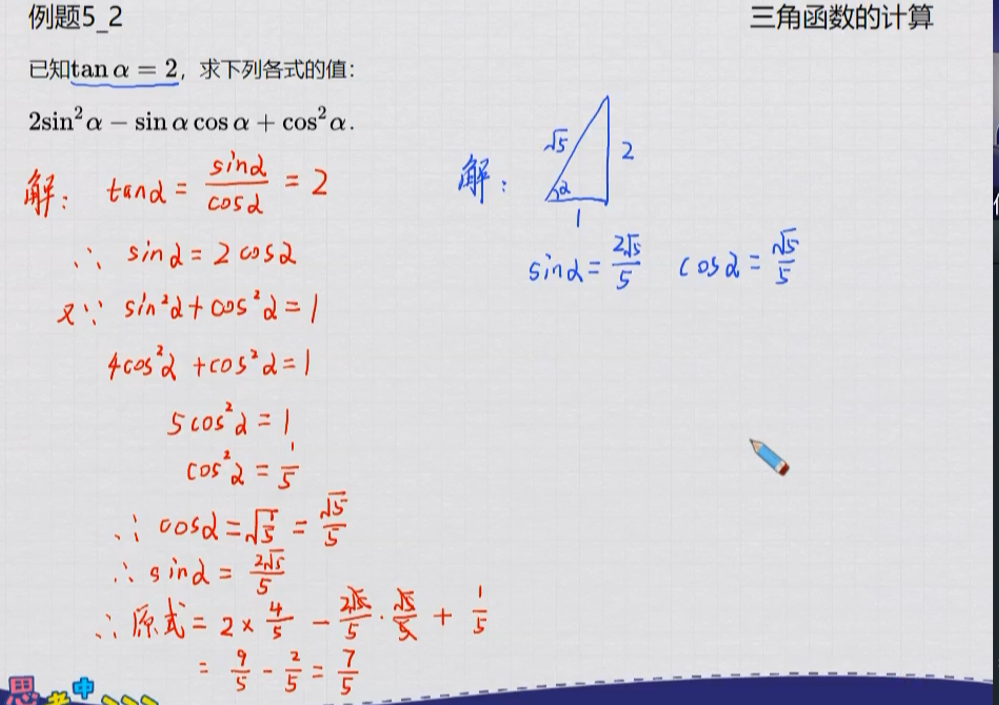 例题5_2
三角函数的计算
已知tan α = 2, 求下列各式的值:
2sin²α − sin α cos α + cos²α.
解: tanα = sinα/cosα = 2
∴ sinα = 2cosα
又∵ sin²α + cos²α = 1
4cos²α + cos²α = 1
5cos²α = 1
cos²α = 1/5
∴ cosα = √(1/5) = √5/5
∴ sinα = 2√5/5
∴ 原式 = 2 × 4/5 − 2√5/5 · √5/5 + 1/5
= 9/5 − 2/5 = 7/5
解:
√5
2
α
1
sinα = 2√5/5 cosα = √5/5
思考中